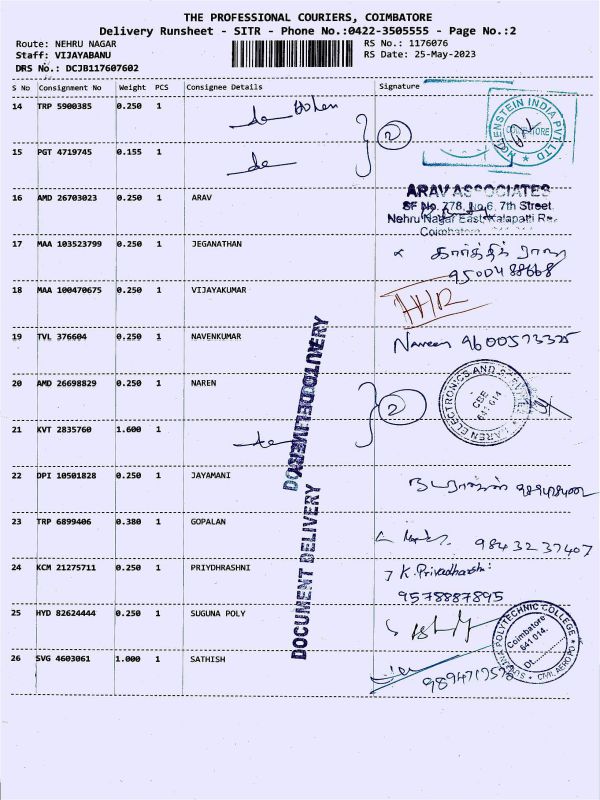 THE PROFESSIONAL COURIERS, COIMBATORE
Delivery Runsheet - SITR - Phone No.:0422-3505555 - Page No.:2
Route: NEHRU NAGAR RS No.: 1176076
Staff: VIJAYABANU RS Date: 25-May-2023
DRS No.: DCJB117607602
S No Consignment No Weight PCS Consignee Details Signature
14 TRP 5900385 0.250 1
COIMBATORE
15 PGT 4719745 0.155 1
2
16 AMD 26703023 0.250 1 ARAV
ARAV ASSOCIATES
SF No. 778, No.6, 7th Street
Nehru Nagar East, Kalapatti
17 MAA 103523799 0.250 1 JEGANATHAN
கார்த்திக்
9500488668
18 MAA 100470675 0.250 1 VIJAYAKUMAR
19 TVL 376604 0.250 1 NAVENKUMAR Naveen 9600573375
20 AMD 26698829 0.250 1 NAREN
2
CBE
641 014
21 KVT 2835760 1.600 1
DOCUMENT DELIVERY
22 DPI 10501828 0.250 1 JAYAMANI
23 TRP 6899406 0.380 1 GOPALAN
9843237407
24 KCM 21275711 0.250 1 PRIYDHRASHNI K. Privadharshi
9578887895
25 HYD 82624444 0.250 1 SUGUNA POLY
POLYTECHNIC COLLEGE
Coimbatore
641 014.
DT.
26 SVG 4603061 1.000 1 SATHISH